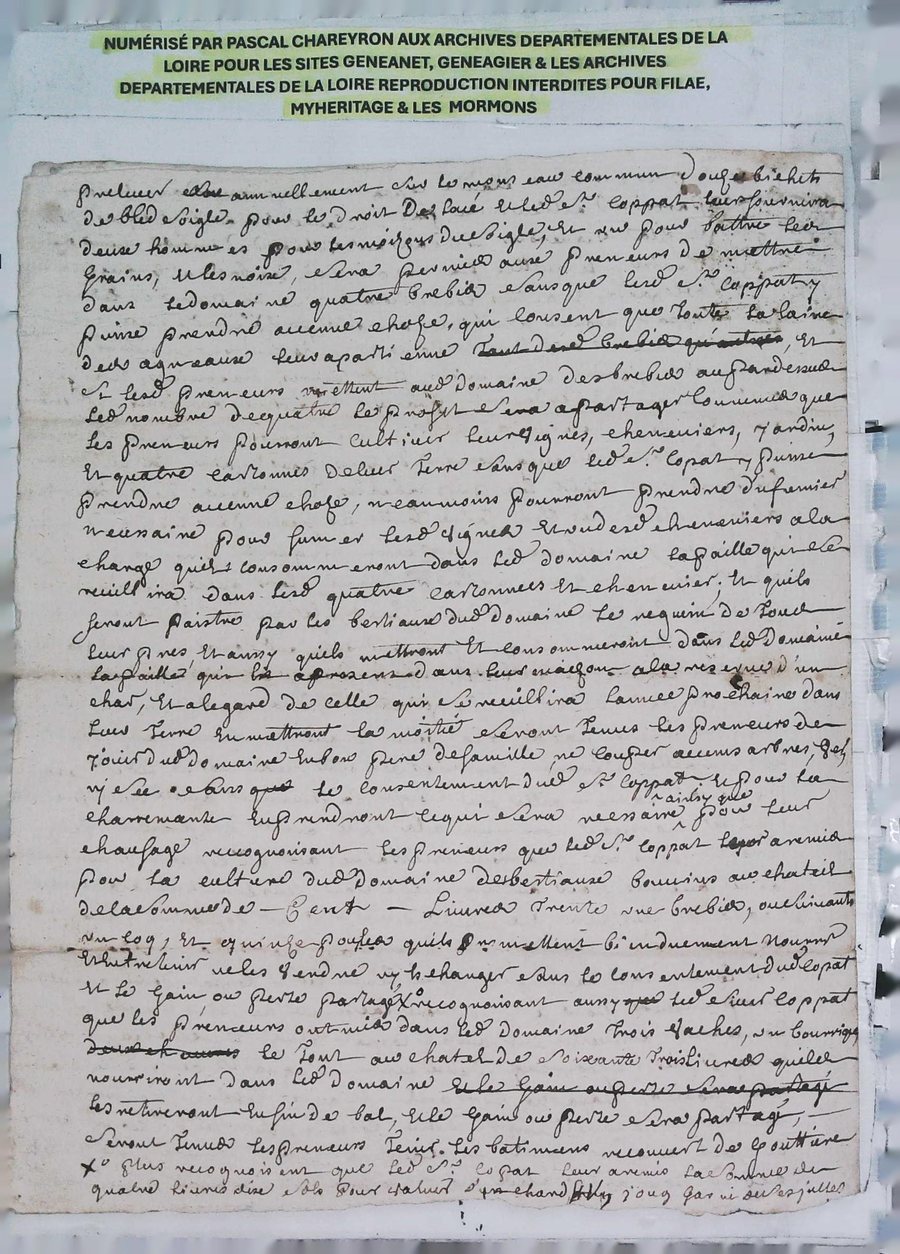 NUMÉRISÉ PAR PASCAL CHAREYRON AUX ARCHIVES DEPARTEMENTALES DE LA
LOIRE POUR LES SITES GENEANET, GENEAGIER & LES ARCHIVES
DEPARTEMENTALES DE LA LOIRE REPRODUCTION INTERDITES POUR FILAE,
MYHERITAGE & LES MORMONS
annuellement sur le monceau commun douze bichets
de bled seigle pour le droit et led sr. coppat leur fournira
deux hommes pour les moissons du seigle, et un pour battre les
grains, et les noix, sera permis aux preneurs de mettre
dans le domaine quatre brebis sans que led sr. coppat y
puisse prendre aucune chose, qui consent que toute la laine
des agneaux leur apartienne, et
si lesd preneurs mettent aud domaine des brebis au pardessus
led nombre de quatre le profit sera a partager comme que
les preneurs pourront cultiver leur vignes, cheneviers, jardin,
et quatre cartonnés de leur terre sans que led sr. copat y puisse
prendre aucune chose, neanmoins pourront prendre du fumier
necessaire pour fumer lesd vignes et cheneviers a la
charge quils consommeront dans led domaine la paille qui se
recüillira dans lesd quatre cartonnees et chenevier, et quils
feront paistre par les bestiaux dud domaine le reguin de tous
leur prés, et aussy quils mettront et consommeront dans led domaine
la paille qui a present dans leur maison a la reserve d'un
char, et a legard de celle qui se recüillira lannee prochaine dans
leur terre en mettront la moitié seront tenus les preneurs de
joüir dud domaine en bon pere de famille ne couper aucuns arbres,
sans le consentement dud sr. coppat et pour la
en prendront ce qui sera nessaire ainsy que pour leur
chaufage reccognoissant les preneurs que led sr. coppat leur a remis
pour la culture dud domaine des bestiaux bouvins au chateil
de la somme de - Cent - Livres trente une brebis,
un coq, et quinze poules quils promettent bien duement nourrir
et entretenir ne les vendre ny echanger sans le consentement dud copat
et le gain ou perte partagé X° recognoissant aussy led sieur coppat
que les preneurs ont mis dans led domaine trois vaches, un bourrique
le tout au chatel de soixante trois livres quils
nourriront dans led domaine et le gain ou perte sera partagé
les retireront en fin de bal, et le gain ou perte sera partagé,
seront tenus les preneurs tenir les batimens recouvert de gouttiere
X° plus recognoissent que led sr. copat leur a remis la somme de
quatre livres dix sols pour valeur joug garni de ses juilles